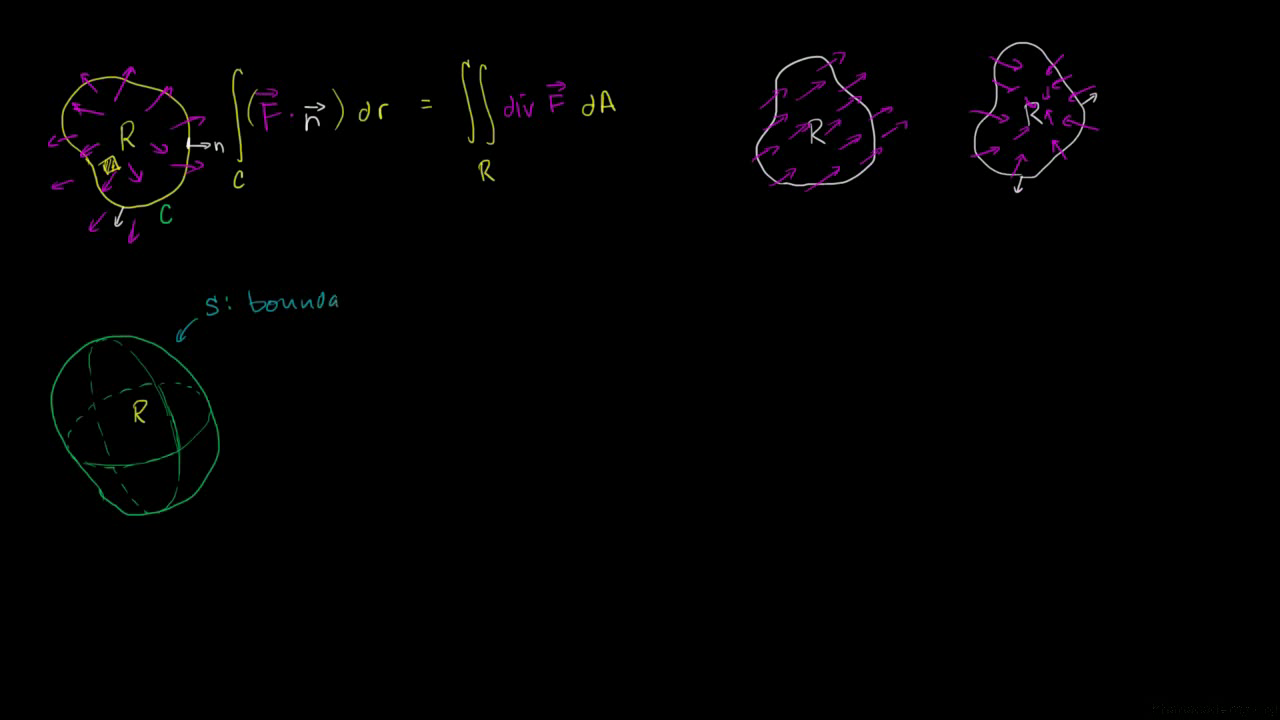 R
n
C
∫_C (F⃗ · n⃗) dr = ∬_R div F⃗ dA
R
R
S: bounda
R